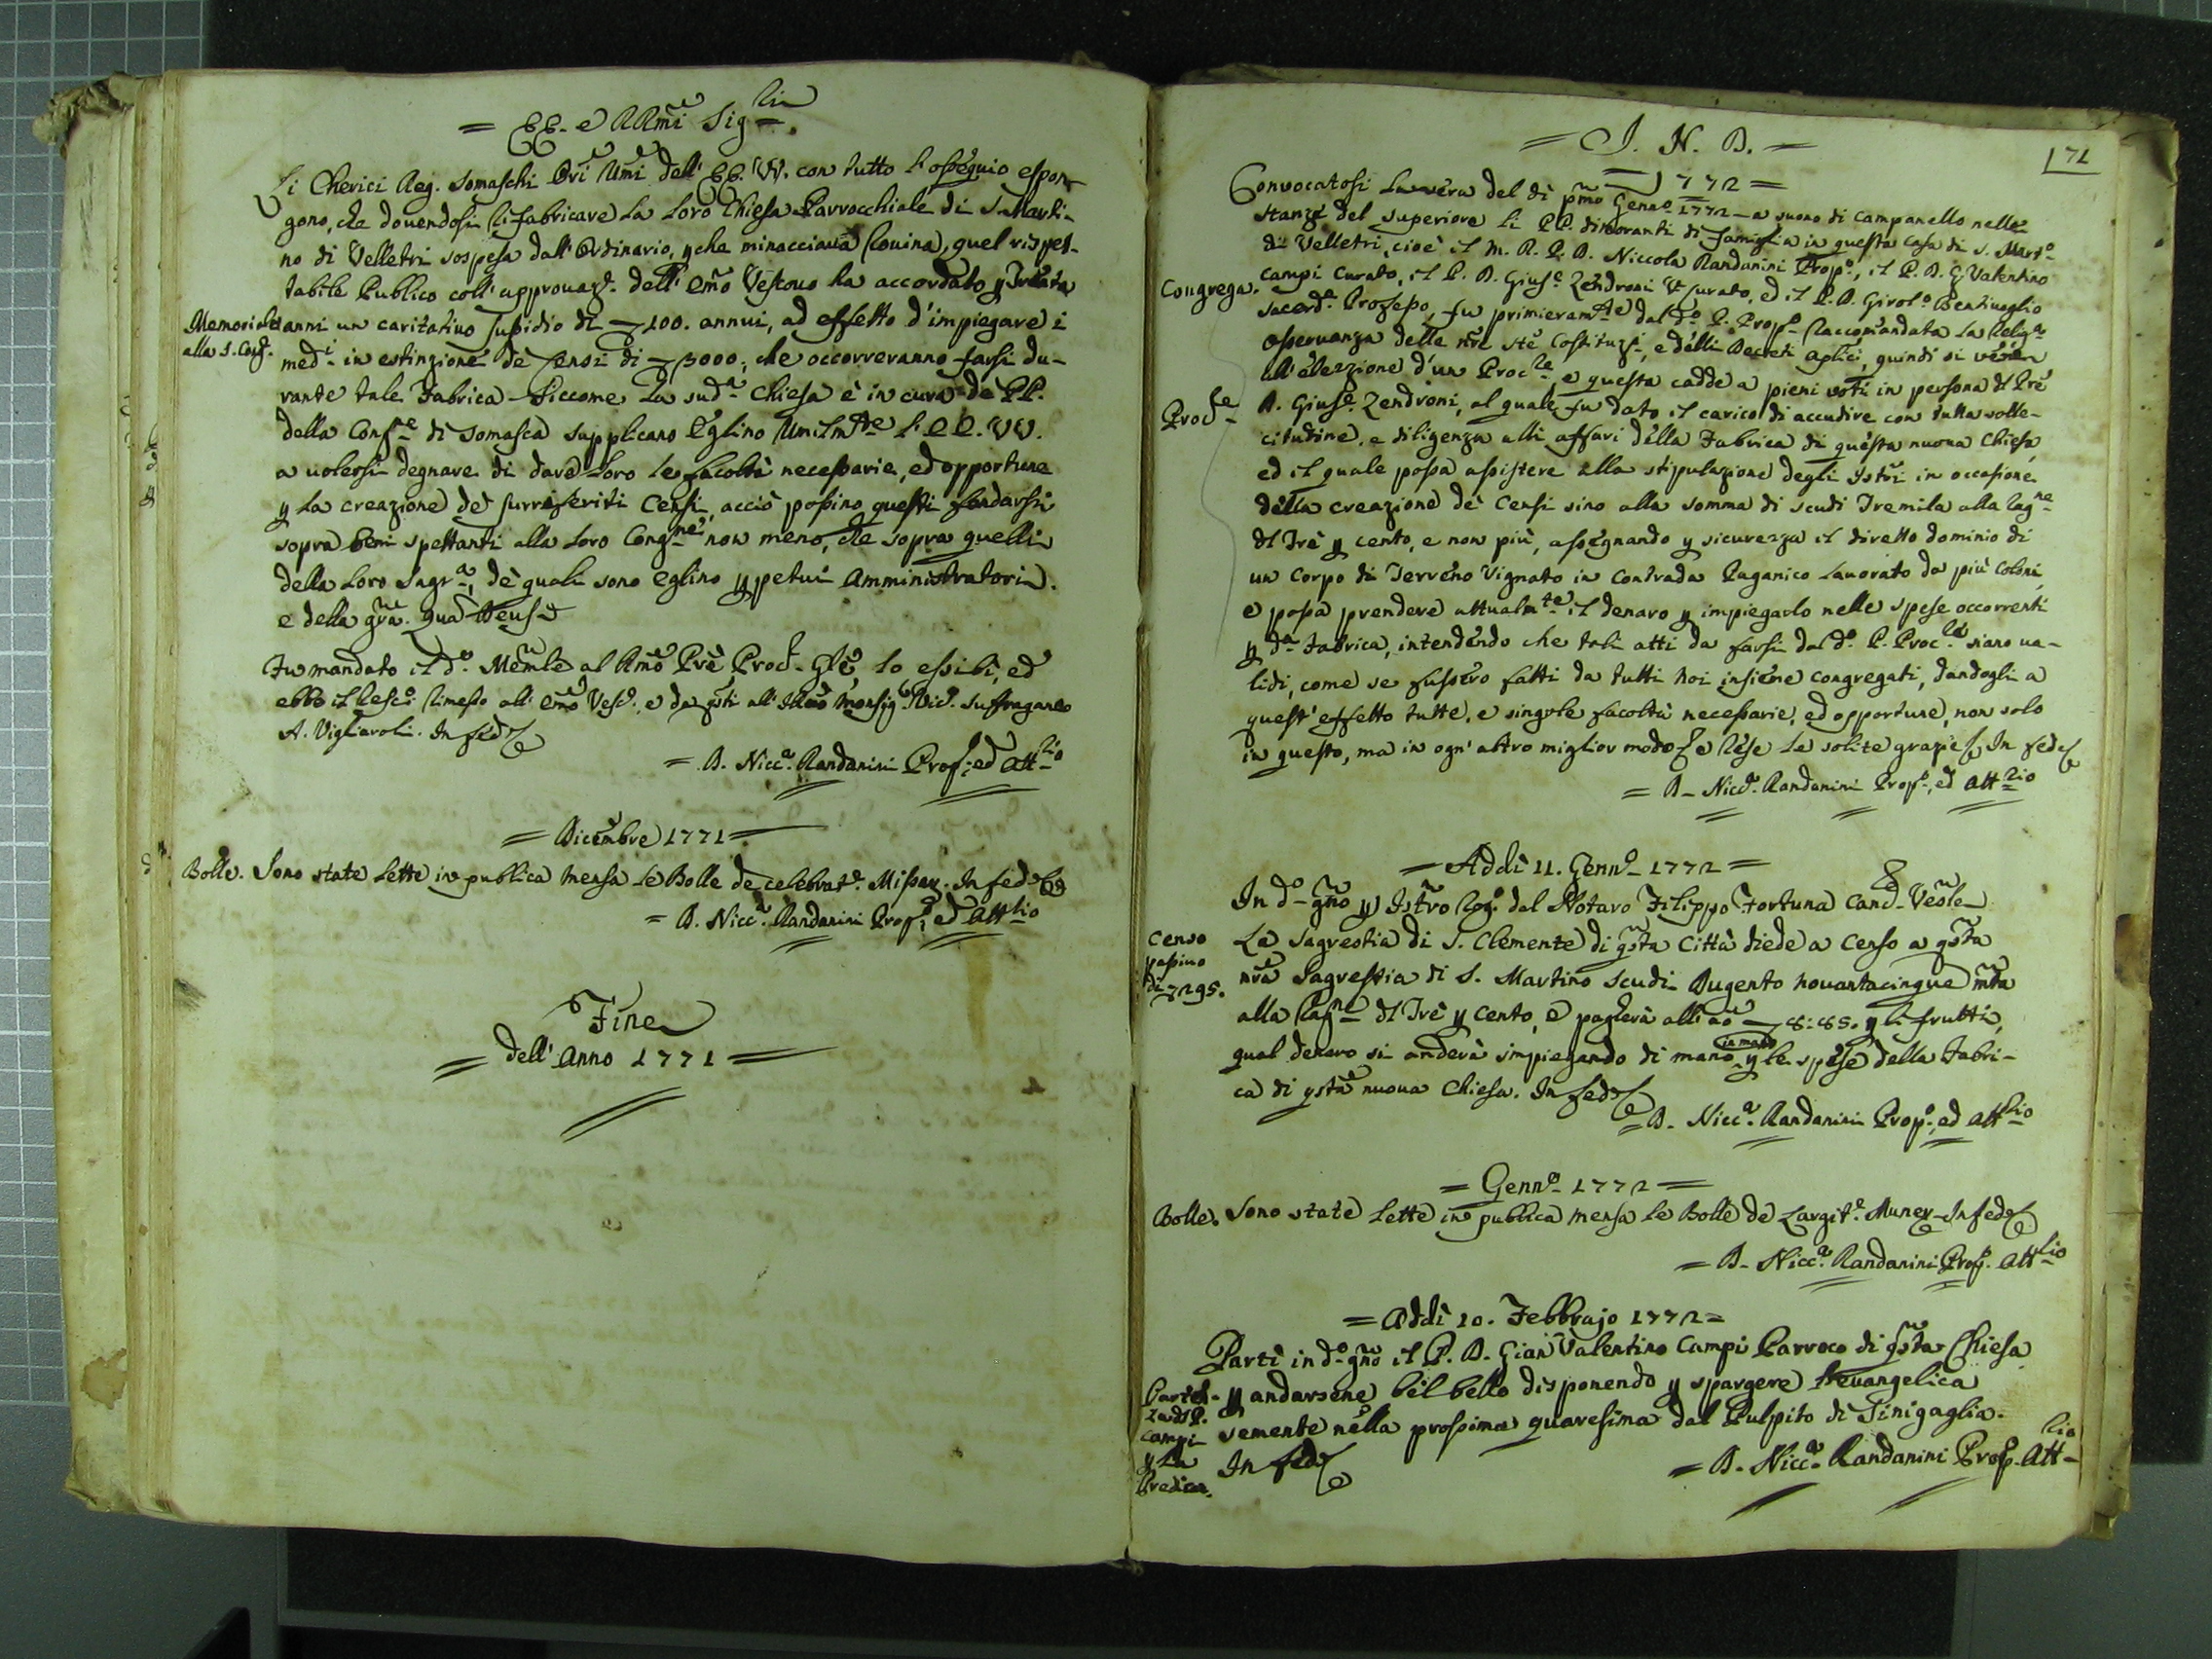 = EE. e RRmi Sigri =.
Li Cherici Reg. Somaschi Ori Umi dell' EE. VV. con tutto l'ossequio espon-
gono, che dovendosi rifabricare la loro Chiesa Parrocchiale di S. Marti-
no di Velletri sospesa dall'Ordinario, pche minacciava rovina, quel rispet-
tabile Publico coll' approvaze. dell' Emo Vescovo ha accordato p Trenta
Memoriale
alla S. Cong.
anni un caritativo susidio di 100. annui, ad effetto d'impiegare i
medi. in estinzione de Censi di 3000. che occorreranno farsi du-
rante tale Fabrica - Siccome la suda. Chiesa è in cura de PP.
della Conge. di Somasca supplicano Eglino Umilmte l' EE. VV.
a volersi degnare di dare loro le facoltà necessarie, ed opportune
p la creazione de surriferiti Censi, acciò possino questi fondarsi
sopra beni spettanti alla loro Congne non meno, che sopra quelli
della loro Sagra, de quali sono eglino ppetui Amministratori.
e della gra. Qua Deus
Fu mandato il do. Memle al Rmo Prè Procr. Gle, lo essibì, ed
ebbe il Resco: rimesso all' Emo Vesco. e da qsti all' Illmo Monsig. Vico. Suffraganeo
A. Vigliaroli. In fede
= D. Nicca. Randanini Propo. ed Attrio
= Dicembre 1771 =
Bolle. Sono state lette in publica mensa le Bolle de celebrate. Missar. In fede
= D. Nicca. Randanini Propo. ed Attrio
Fine
= dell' Anno 1771 =
171
= I. N. D. =
= 1772 =
Convocatosi la sera del dì pmo Genno 1772 - a suono di campanello nelle
stanze del Superiore li PP. dimoranti di famiglia in questa Casa di S. Marto.
di Velletri, cioè il M. R. P. D. Niccola Randanini Propo., il P. D. G. Valentino
Congrega.
Campi Curato, il P. D. Giuse. Zendroni V. Curato, ed il P. D. Girolo. Bentivoglio
Sacerde. Professo, fu primieramte dal do. P. Propo. raccomandata la Religa.
osservanza delle nre Ste Costituzi., e delli Decreti aplici, quindi si venne
all' elezzione d'un Procle, e questa cadde a pieni voti in persona dl Prè
Procle
D. Giuse. Zendroni, al quale fu dato il carico di accudire con tutta solle-
citudine, e diligenza alli affari della Fabrica di questa nuova Chiesa,
ed il quale possa assistere alla stipulazione degli Istri in occasione
della creazione de Censi sino alla somma di scudi Tremila alla ragne
dl Trè p cento, e non più, assegnando p sicurezza il diretto dominio di
un Corpo di Terreno Vignato in Contrada Paganico lavorato da più Coloni,
e possa prendere attualmte il denaro p impiegarlo nelle spese occorrenti
p da. Fabrica, intendendo che tali atti da farsi dal do. P. Procle siano va-
lidi, come se fussero fatti da tutti noi insieme congregati, dandogli a
quest' effetto tutte, e singole facoltà necessarie, ed opportune, non solo
in questo, ma in ogn' altro miglior modo e rese le solite grazie. In fede
= D. Nicca. Randanini Propo., ed Attrio
= Addì 11. Genno. 1772 =
In do. gno p Istro rog. dal Notaro Filippo Fortuna Canc. Vesle
Censo
passivo
di 295.
La Sagrestia di S. Clemente di qsta Città diede a censo a qsta
nra Sagrestia di S. Martino scudi Dugento novantacinque mta
alla ragne dl Trè p cento, e pagherà all' ao 8:85. p li frutti,
qual denaro si anderà impiegando di mano in mano p le spese della Fabri-
ca di qsta nuova Chiesa. In fede
= D. Nicca. Randanini Propo., ed Attrio
= Genno. 1772 =
Bolle. Sono state lette in publica mensa le Bolle de Largite. Muner. In fede
= D. Nicca. Randanini Propo. Attrio
= Addì 10. Febbrajo 1772 =
Partì in do. gno il P. D. Gian Valentino Campi Parroco di qsta Chiesa
Parten-
za dl P.
Campi
p la
Predica.
p andarsene bel bello disponendo p spargere l'evangelica
semente nella prossima quaresima dal Pulpito di Sinigaglia.
In fede
= D. Nicca. Randanini Propo. Attrio